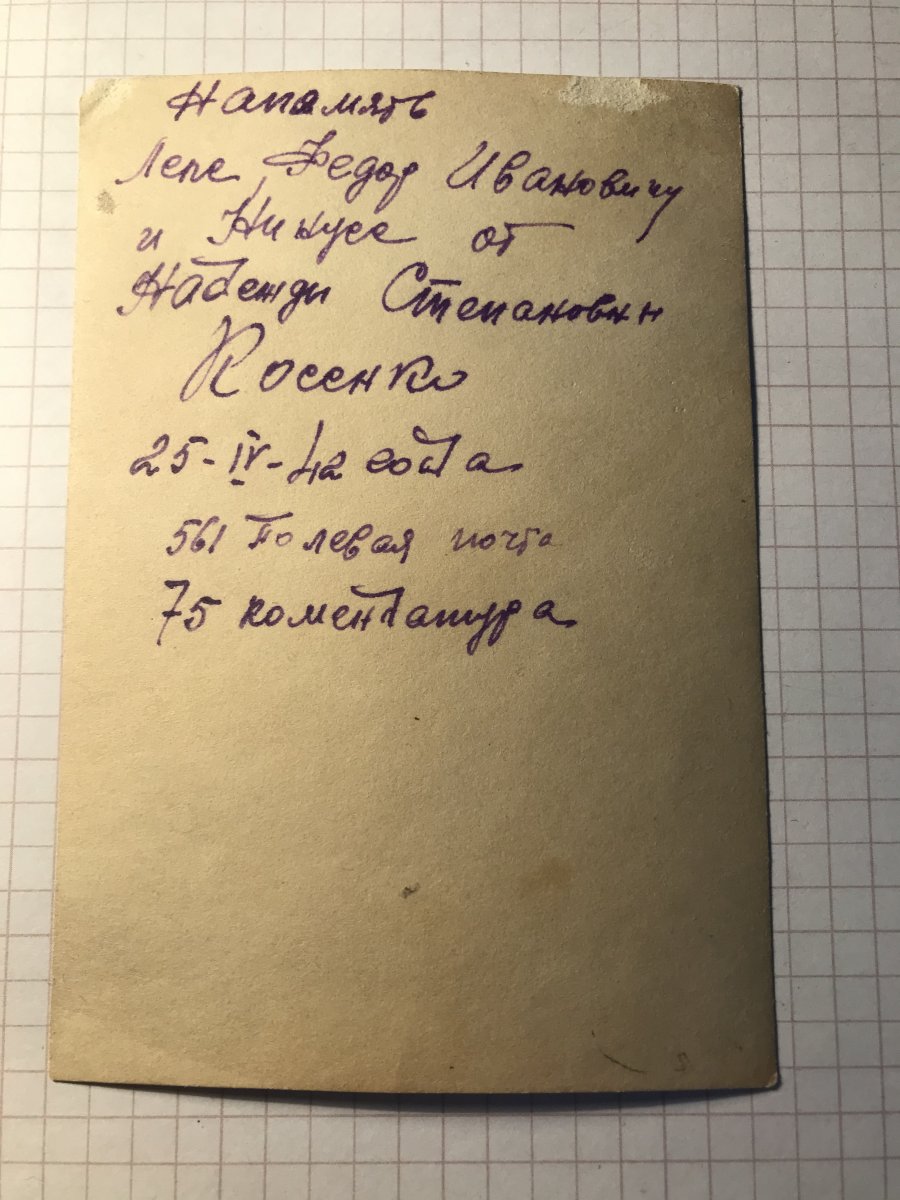 На память
Лепе, Федор Ивановичу
и Нинусе от
Надежди Степановни
Косенко
25-IV-42 года
561 Полевая почта
75 коментатура